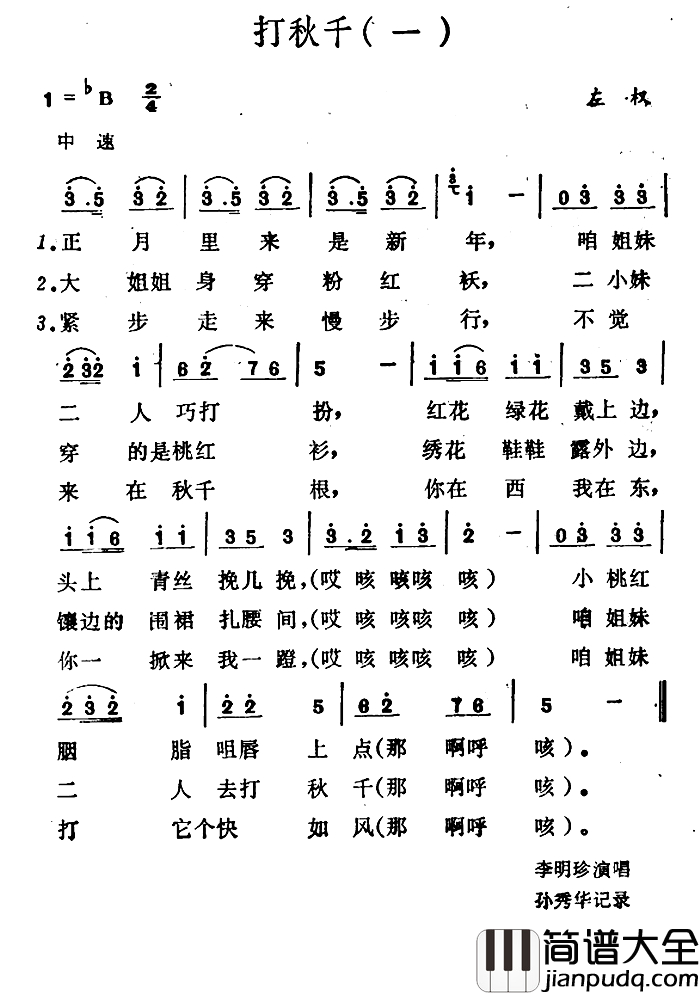 打秋千（一）
1=♭B 2/4 左权
中速
3.5 3 2 | 3.5 3 2 | 3.5 3 2 | 1 － | 0 3 3 3 |
1.正 月 里 来 是 新 年， 咱 姐妹
2.大 姐姐 身 穿 粉 红 袄， 二 小妹
3.紧 步 走 来 慢 步 行， 不 觉
2 3 2 1 | 6 2 7 6 | 5 － | 1 1 6 1 1 | 3 5 3 |
二 人 巧打 扮， 红花 绿花 戴上 边，
穿 的是 桃红 衫， 绣花 鞋鞋 露外 边，
来 在 秋千 根， 你在 西 我在 东，
1 1 6 1 1 | 3 5 3 | 3.2 1 3 | 2 － | 0 3 3 3 |
头上 青丝 挽几 挽，(哎 咳 咳咳 咳) 小 桃红
镶边的 围裙 扎腰 间，(哎 咳 咳咳 咳) 咱 姐妹
你一 掀来 我一 蹬，(哎 咳 咳咳 咳) 咱 姐妹
2 3 2 1 | 2 2 5 | 6 2 7 6 | 5 － ‖
胭 脂 咀唇 上 点(那 啊呼 咳)。
二 人 去打 秋 千(那 啊呼 咳)。
打 它个 快 如 风(那 啊呼 咳)。
李明珍演唱
孙秀华记录
简谱大全
jianpudq.com